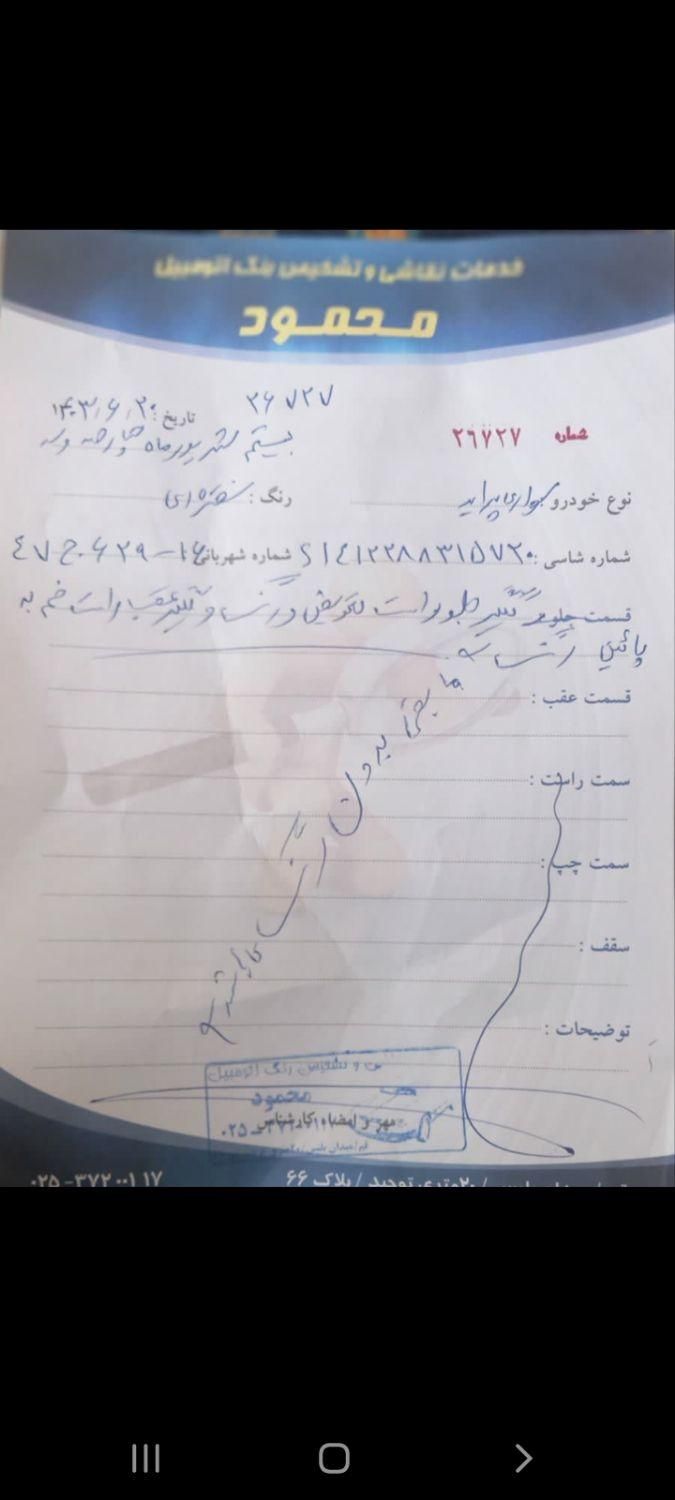 خدمات نقاشی و تشخیص رنگ اتومبیل
محمود
شماره ۲۶۷۲۷
۲۶۷۲۷
تاریخ : ۱۴۰۳/۶/۲۰
بیستم شهریور ماه چهارصد و سه
نوع خودرو : سواری پراید
رنگ : نقره‌ای
شماره شاسی : S۱۴۱۲۲۸۸۳۱۵۷۲۰
شماره شهربانی : ۱۶-۶۲۹ج۴۷
قسمت جلو : گلگیر جلو راست تعویض و رنگ و گلگیر عقب راست خم به
پائین رنگ
قسمت عقب :
مابقی بدون رنگ
سمت راست :
سمت چپ :
سقف :
توضیحات :
تشخیص رنگ اتومبیل
محمود
مهر و امضاء کارشناس
۰۲۵-۳۷۲۰۰۱۱۷
۲۰متری توحید / پلاک ۶۶